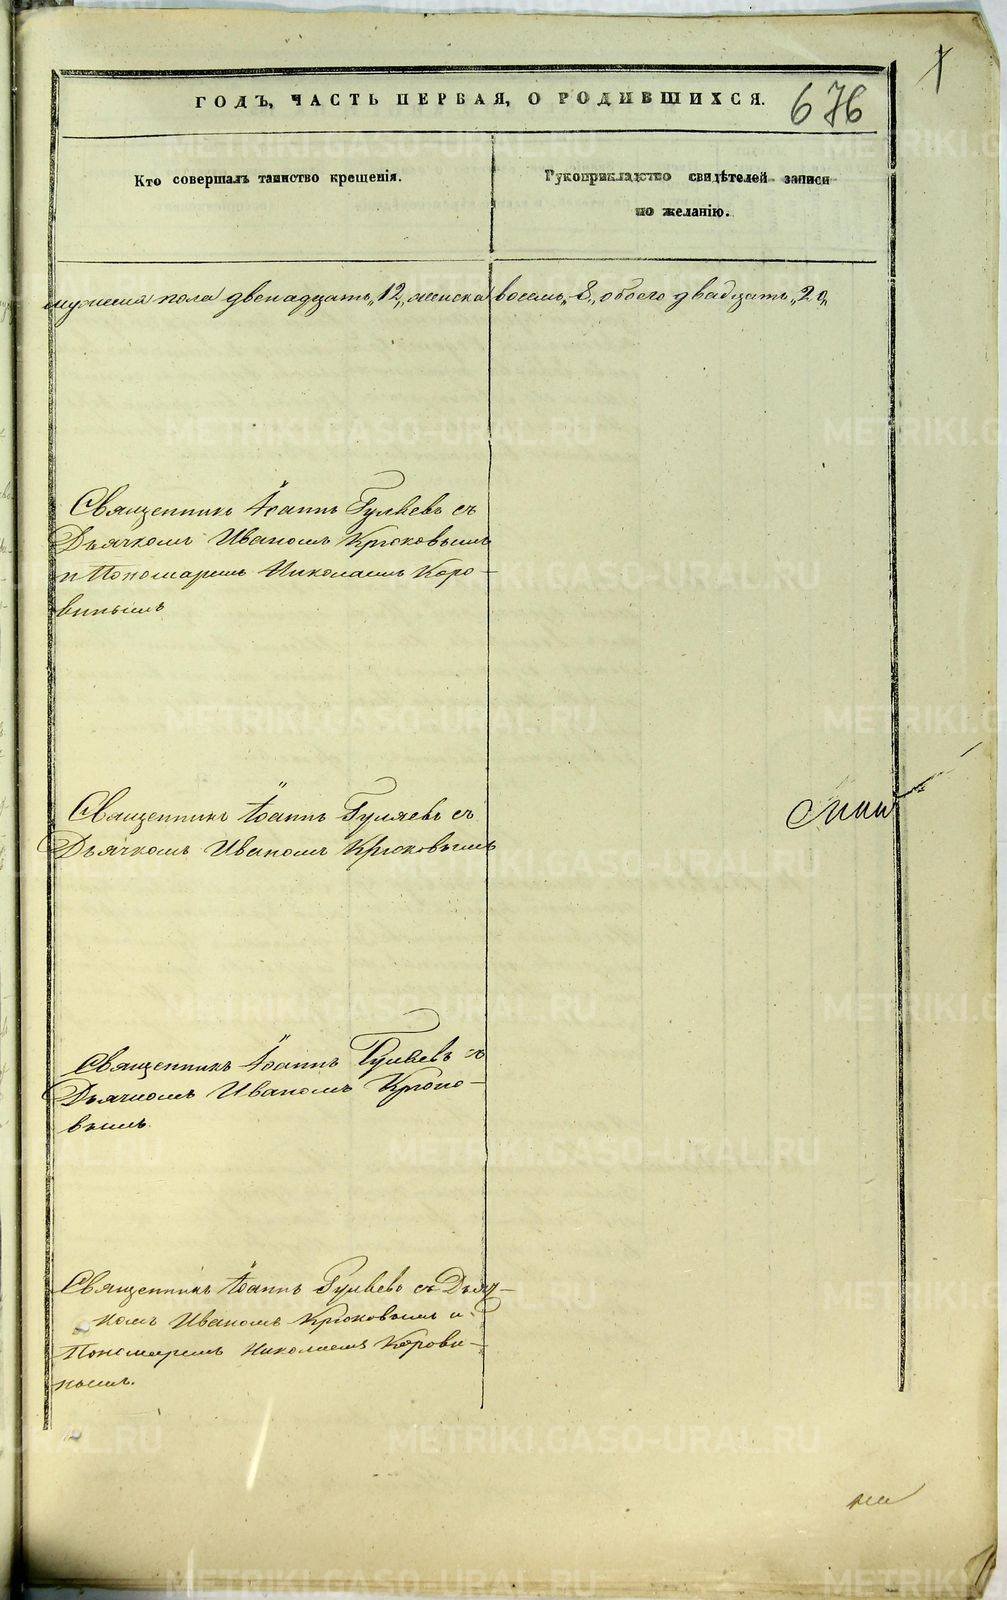 ГОДЪ, ЧАСТЬ ПЕРВАЯ, О РОДИВШИХСЯ.
676
Кто совершалъ таинство крещенія.
Рукоприкладство свидѣтелей записи
по желанію.
мужеска пола двенадцать „12„ женска восемь „8„ обоего двадцать „20„
Священникъ Іоаннъ Гуляевъ съ
Дьячкомъ Иваномъ Крюковымъ
и Пономаремъ Николаемъ Коро-
винымъ
Священникъ Іоаннъ Гуляевъ съ
Дьячкомъ Иваномъ Крюковымъ
Священникъ Іоаннъ Гуляевъ съ
Дьячкомъ Иваномъ Крюко-
вымъ.
Священникъ Іоаннъ Гуляевъ съ Дьяч-
комъ Иваномъ Крюковымъ и
Пономаремъ Николаемъ Корови-
нымъ.
METRIKI.GASO-URAL.RU